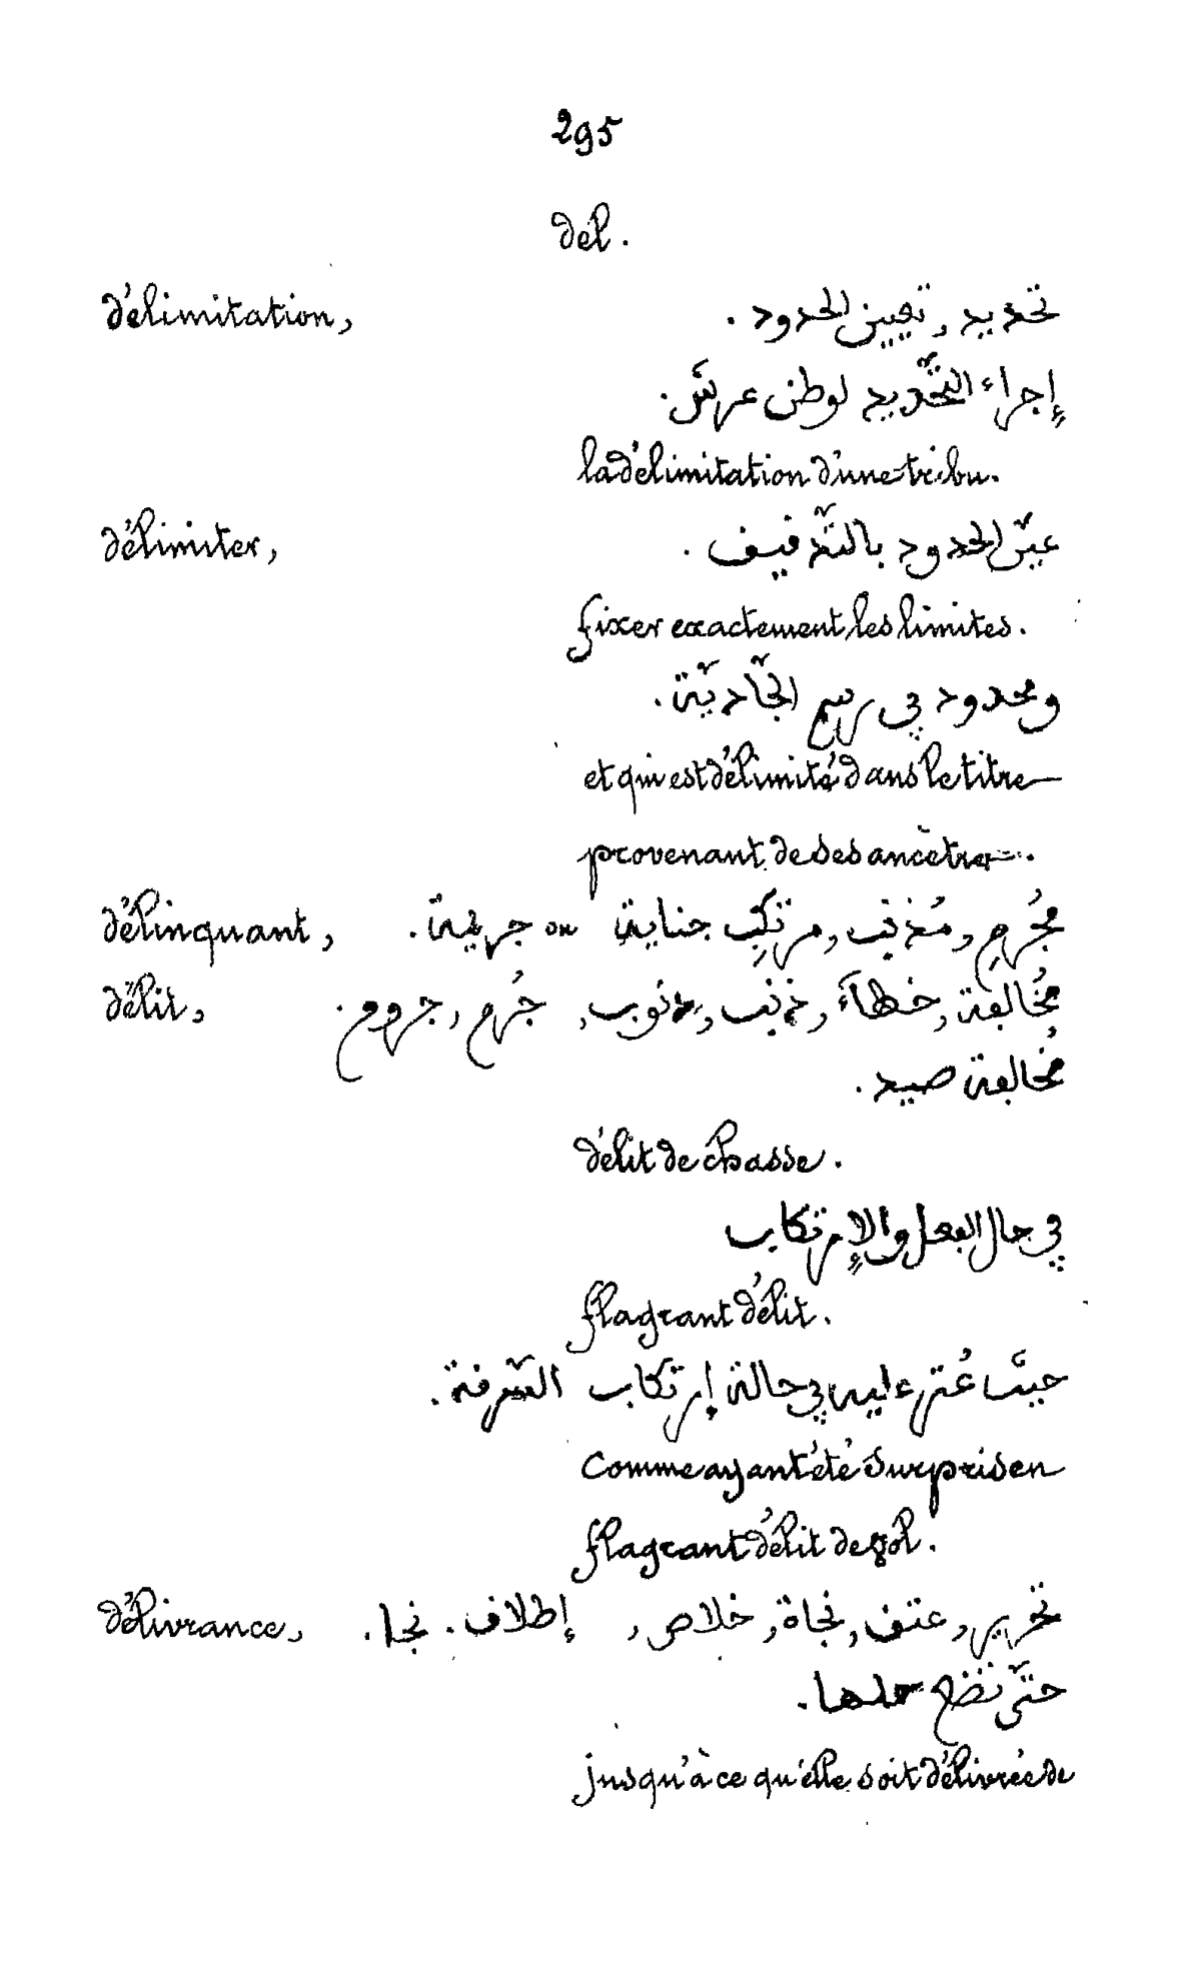 295
del.
délimitation, تحديد, تعيين الحدود.
إجراء التّحديد لوطن عرش.
la délimitation d'une tribu.
délimiter, عيّن الحدود بالتّدفيف.
fixer exactement les limites.
ومحدود ڢي رسم
et qui est délimité dans le titre
provenant de ses ancètres.
délinquant, مُجْرِم, مُذنِب, مرتكِب جناية ou جريمة.
délit, مُخالڢة, خطاء, ذنب, ذنوب, جُرم, جروم.
مُخالڢة صيد.
délit de chasse.
ڢي حال الڢعل والإرتكاب
flagrant délit.
عُثر عليه ڢي حالة إرتكاب السّرفة.
comme ayant été surpris en
flagrant délit de vol.
délivrance, تحرير, عتف, نجاة, خلاص, إطلاف. نجا.
حتّى تضع حملها.
jusqu'à ce qu'elle soit délivrée de